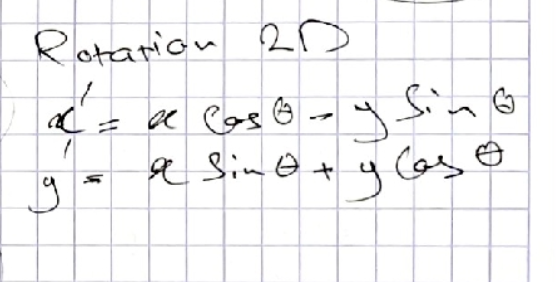 Rotation 2D
x' = x Cos θ - y Sin θ
y' = x Sin θ + y Cos θ